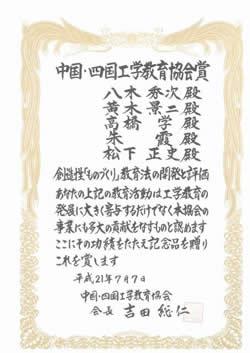 中国・四国工学教育協会賞
八木秀次殿
黄木景二殿
高橋学殿
朱霞殿
松下正史殿
創造性「ものづくり」教育法の開発と評価
あなたの上記の教育活動は工学教育の
発展に大きく寄与するだけでなく本協会の
事業にも多大の貢献をなすものと認めます
ここにその功績をたたえ記念品を贈り
これを賞します
平成21年7月7日
中国・四国工学教育協会
会長 吉田総仁